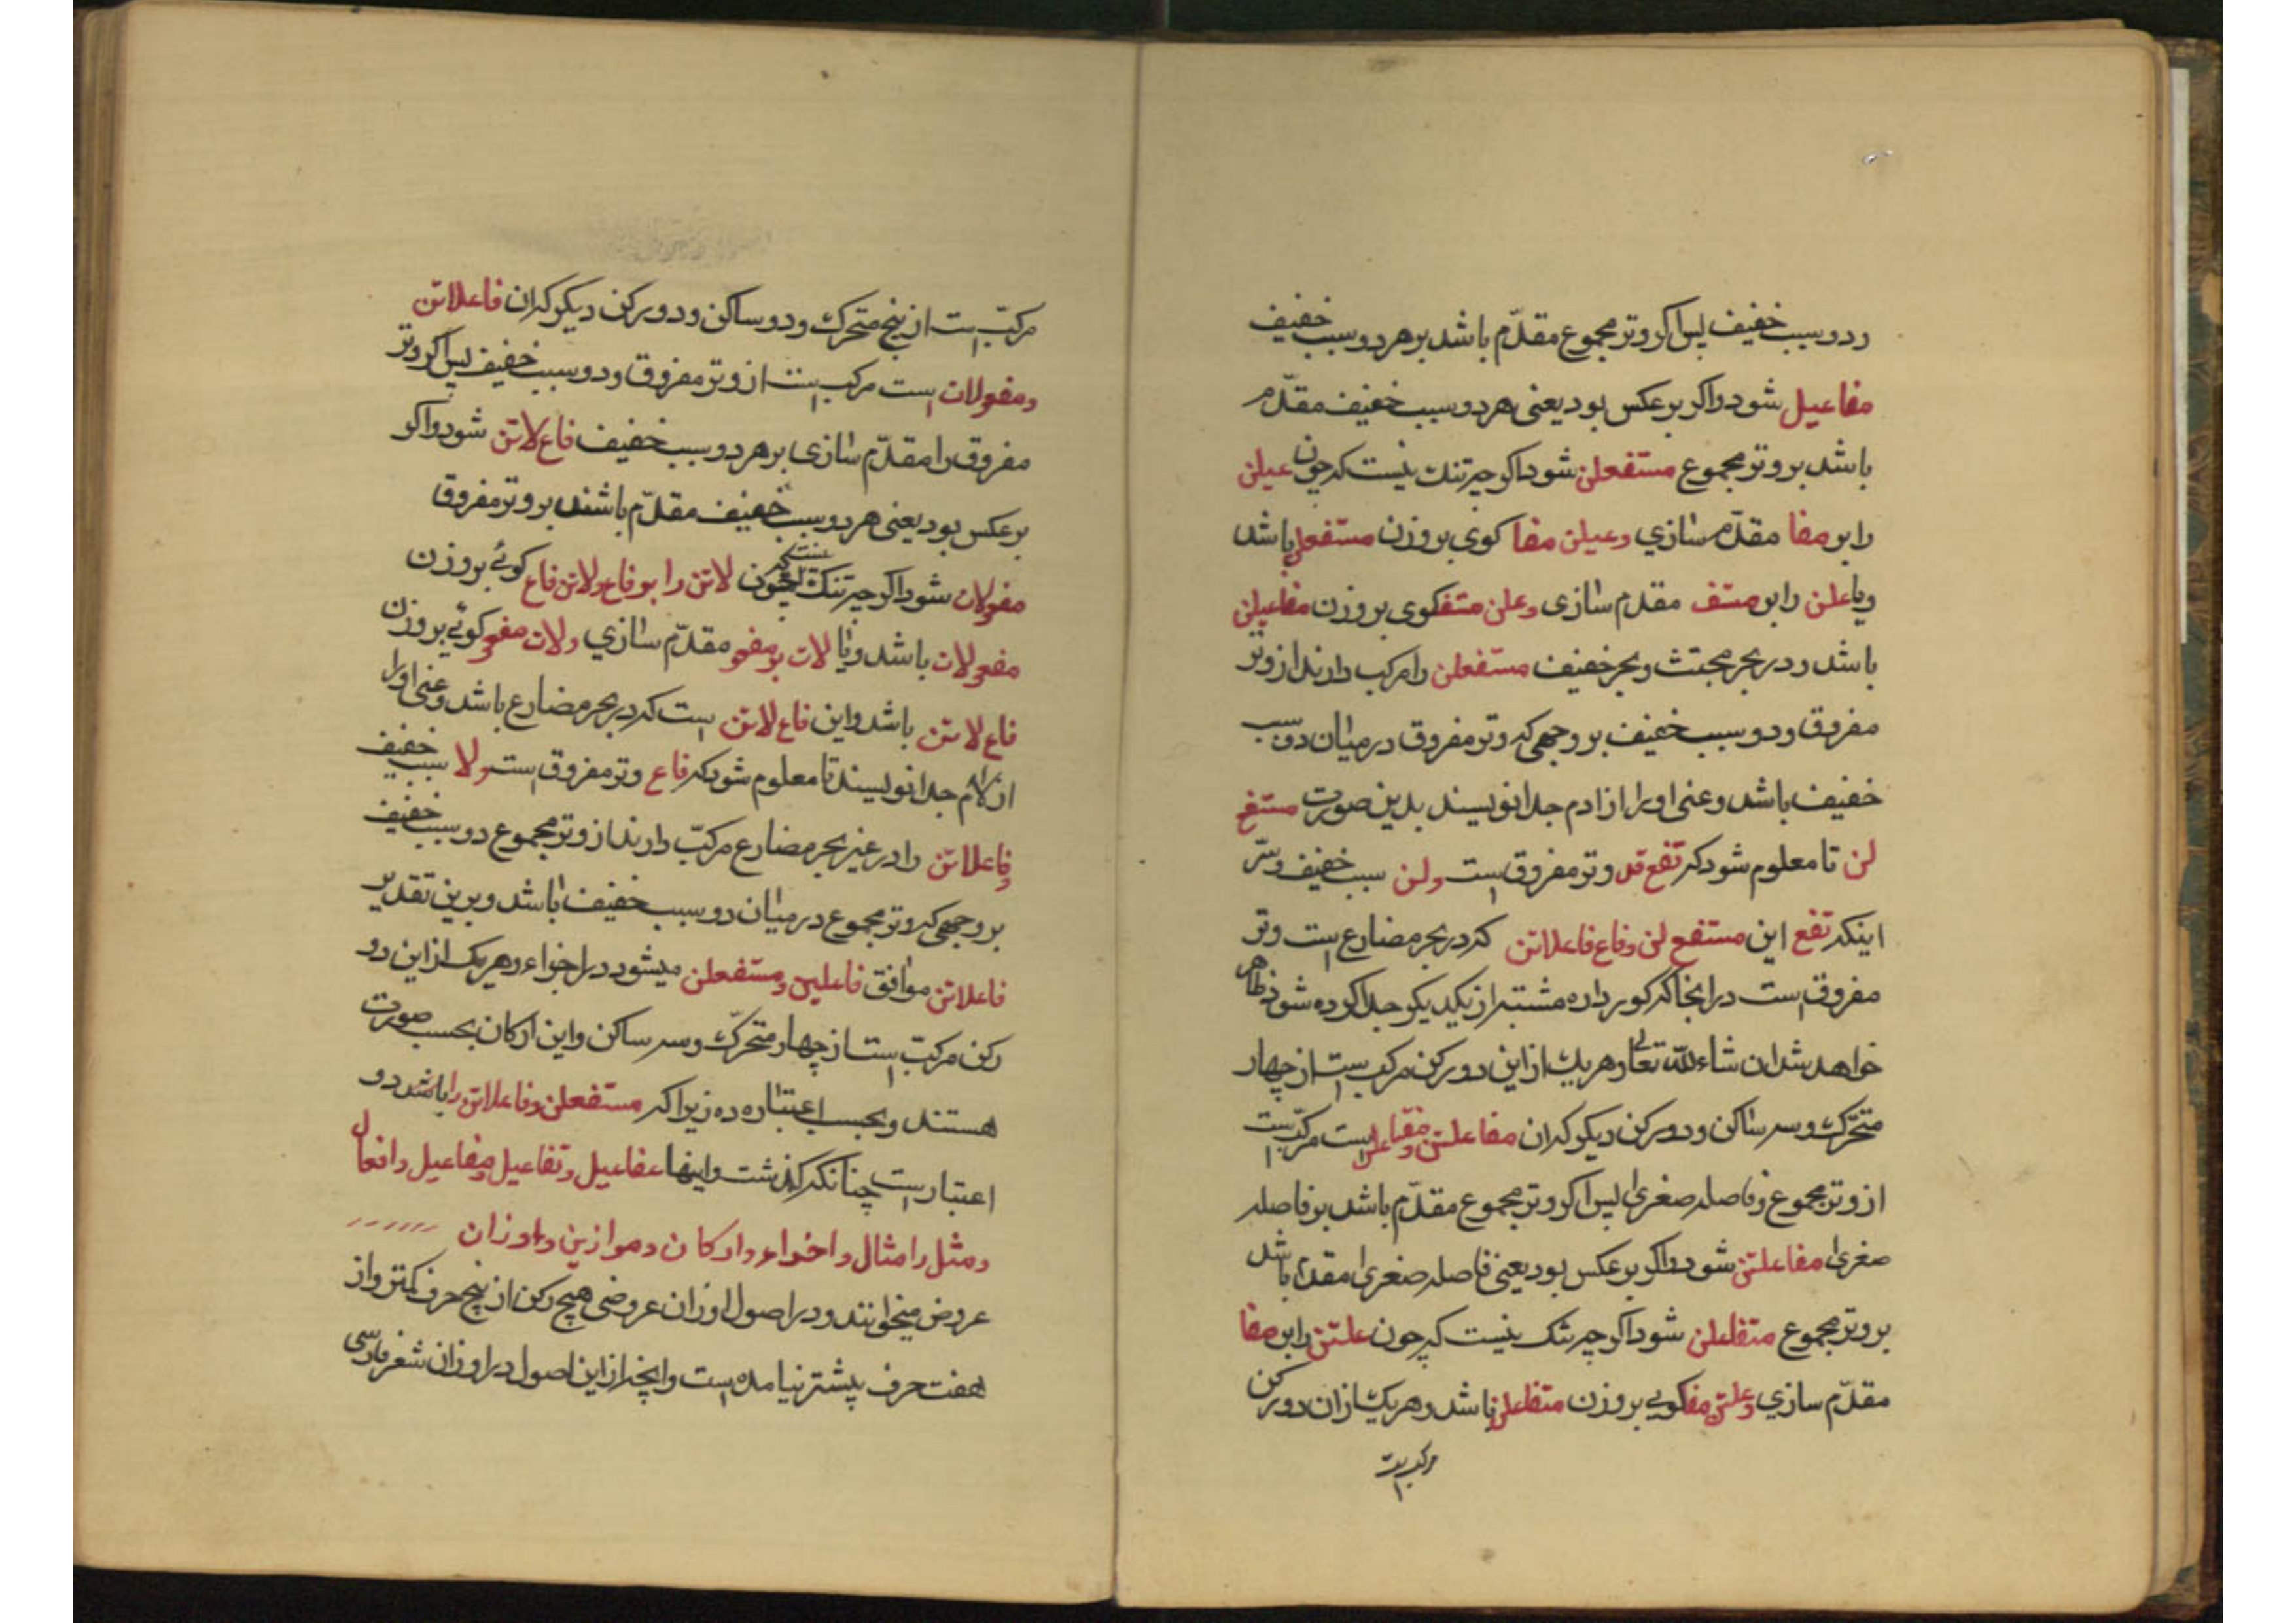 ودو سبب خفیف پس اکر وتد مجموع مقدّم باشد بر هر دو سبب خفیف
مفاعیل شود واکر بر عکس بود یعنی هر دو سبب خفیف مقدّم
باشد بر وتد مجموع مستفعلن شود اکر چه تنك نیست که چون عیلن
را بر مفا مقدّم سازی وعیلن مفا کوی بر وزن مستفعلن باشد
ویا علن را بر مستف مقدم سازی وعلن مستف کوی بر وزن مفاعیلن
باشد ودر بحر مجتث وبحر خفیف مستفعلن را مرکب دارند از وتد
مفروق ودو سبب خفیف بر وجهی که وتد مفروق در میان دو سبب
خفیف باشد وعنی او را از ادم جدا نویسند بدین صورت مستفع
لن تا معلوم شود که تفع قد وتد مفروق است ولن سبب خفیف وسرّ
اینکه تفع این مستفع لن وفاع فاعلاتن که در بحر مضارع است وتد
مفروق است در انجا که کویر داره مشتبه از یکدیکر جدا کرده شود ظاهر
خواهد شد ان شاء الله تعالی وهر یك از این دو رکن مرکب است از چهار
متحرّك وسه ساکن ودو رکن دیکر که ان مفاعلتن ومتفاعلن است مرکّب است
از وتد مجموع وفاصله صغری پس اکر وتد مجموع مقدّم باشد بر فاصله
صغری مفاعلتن شود واکر بر عکس بود یعنی فاصله صغری مقدم باشد
بر وتد مجموع متفاعلن شود اکر چه شك نیست که چون علتن را بر مفا
مقدّم سازی وعلتن مفا کویی بر وزن متفاعلن باشد وهر یك از ان دو رکن
مرکب است
مرکّب است از پنج متحرك ودو ساکن ودو رکن دیکر که ان فاعلاتن
ومفولات است مرکب است از وتد مفروق ودو سبب خفیف پس اکر وتد
مفروق را مقدّم سازی بر هر دو سبب خفیف فاع لاتن شود واکر
بر عکس بود یعنی هر دو سبب خفیف مقدّم باشند بر وتد مفروق
مفولات شود اکر چه تنك نیست که چون لاتن را بر فاع ولاتن فاع کوئی بر وزن
مفعولات باشد ویا لات بر مفعو مقدّم سازی ولات مفعو کوئی بر وزن
فاع لاتن باشد واین فاع لاتن است که در بحر مضارع باشد وعنی او را
از لام جدا نویسند تا معلوم شود که فاع وتد مفروق است ولا سبب خفیف
وفاعلاتن را در غیر بحر مضارع مرکّب دارند از وتد مجموع دو سبب خفیف
بر وجهی که وتد مجموع در میان دو سبب خفیف باشد وبرین تقدیر
فاعلاتن موافق فاعلین ومستفعلن میشود در اجزاء وهر یك از این دو
رکن مرکبّ است از چهار متحرّك وسه ساکن واین ارکان بحسب صورت
هستند وبحسب اعتبار ده زیرا که مستفعلن وفاعلاتن را باشد دو
اعتبار است چنانکه کذشت واینها عفاعیل وتفاعیل ومفاعیل وافعال
ومثل را امثال واخراء وارکان وموازین واوزان
عروض میخوانند ودر اصول اوزان عروضی هیچ رکن از پنج حرف کمتر واز
هفت حرف پیشتر نیامده است وانچه از این اصول در اوزان شعر فارسی